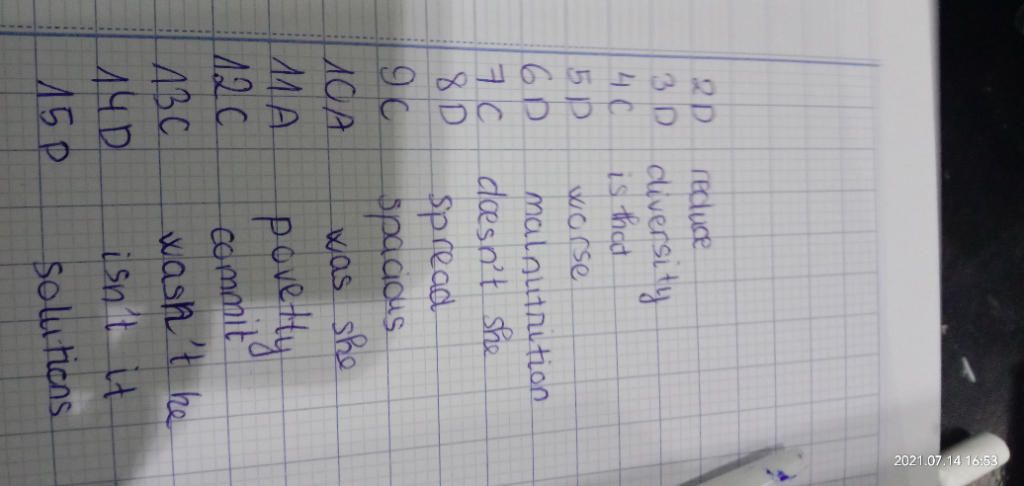 2D reduce
3D diversity
4C is that
5D worse
6D malnutrition
7C doesn't she
8D spread
9C spacious
10A was she
11A povetty
12C commit
13C wasn't he
14D isn't it
15D solutions
2021.07.14 16:53